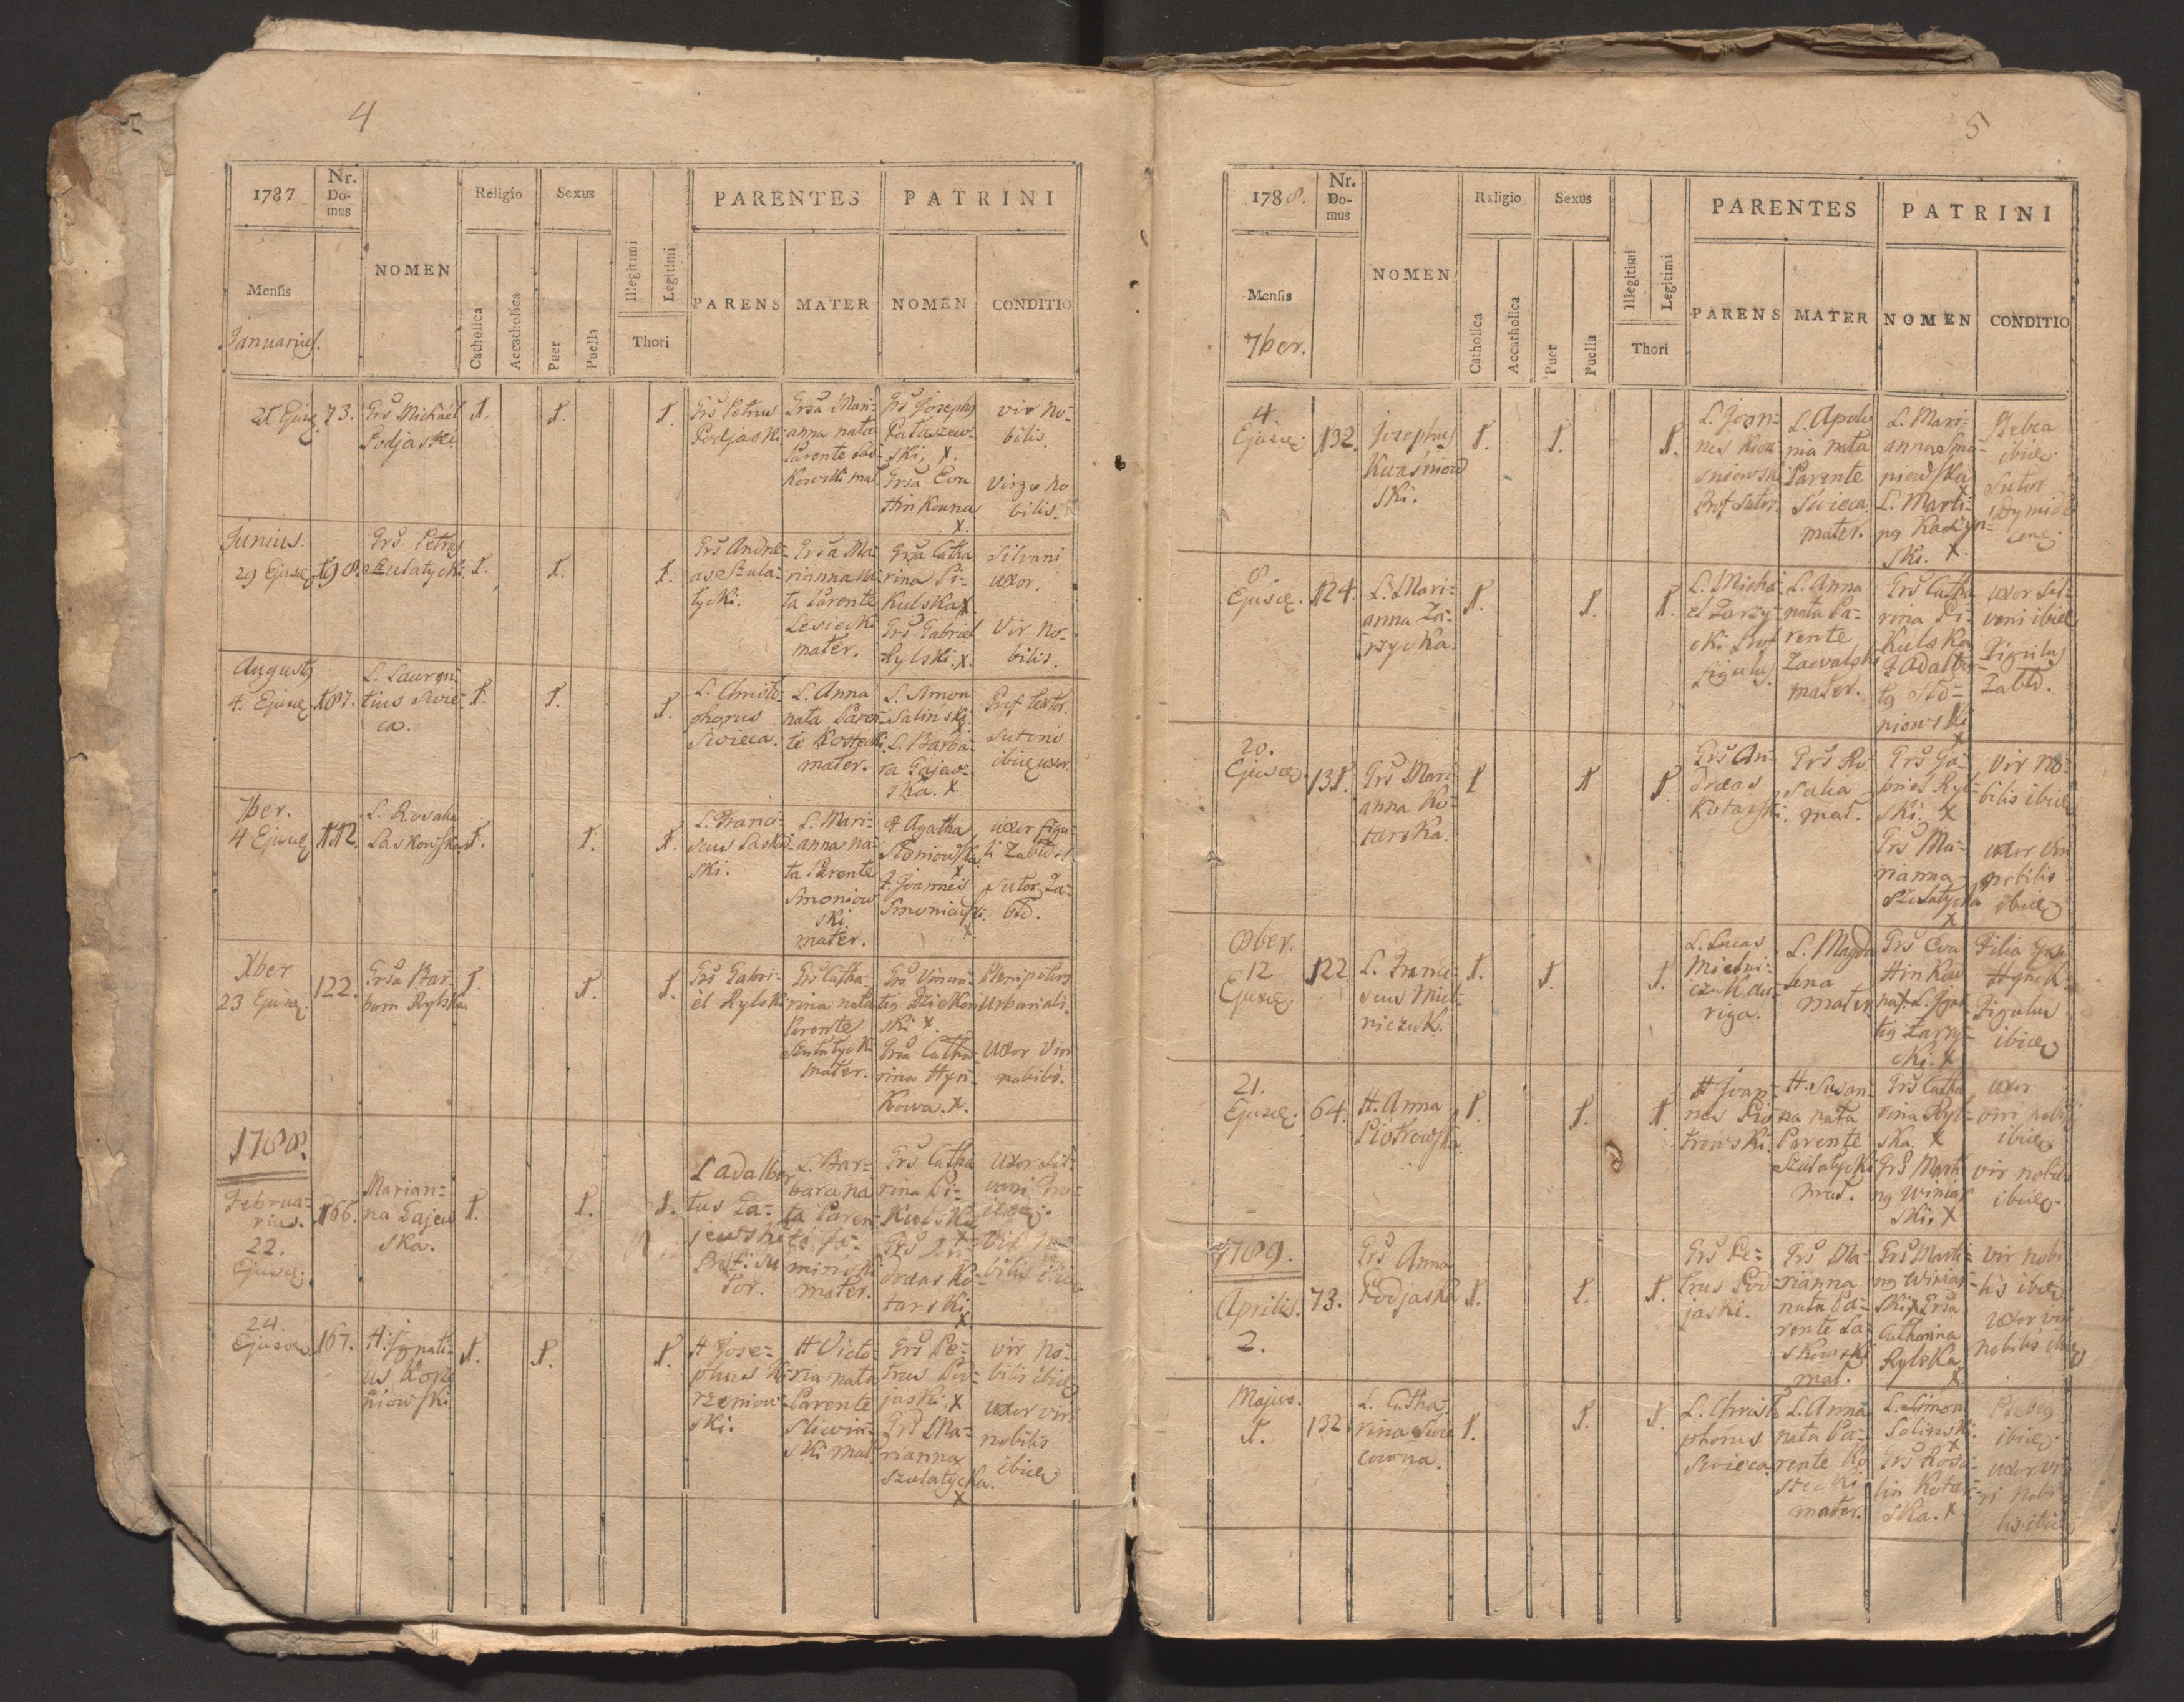 4
1787
Nr.
Do-
mus
NOMEN
Religio
Sexus
Illegitimi
Legitimi
PARENTES
PATRINI
Mensis
Januarius.
Catholica
Accatholica
Puer
Puella
Thori
PARENS
MATER
NOMEN
CONDITIO
21 Ejusd.
73.
Grs Michael
Podjaski
1.
1.
1.
Grs Petrus
Podjaski
Grsa Mari-
anna nata
Parente Las-
kowski mat.
Grs Josephus
Pataszew-
ski, x.
Grsa Eva
Hinkowna
x.
vir no-
bilis.
Virgo no
bilis.
Junius.
29 Ejusd.
198.
Grs Petrus
Szulatycki.
1.
1.
1.
Grs Andre-
as Szula-
tycki.
Grsa Ma-
rianna na-
ta Parente
Lesiecki
mater.
Grsa Catha
rina Pi-
kulska x.
Grs Gabriel
Rylski. x.
Silvani
uxor.
Vir no-
bilis.
Augusty
4. Ejusd.
187.
L. Lauren-
tius Swie-
ca.
1.
1.
1.
L. Christo-
phorus
Swieca.
L. Anna
nata Paren-
te Kostecki
mater.
L. Simon
Salinski.
L. Barba-
ra Gajew-
ska. x
Prof. textor.
Sutoris
ibid. uxor.
7ber.
4 Ejusd.
112.
L. Rosalia
Laskowska
1.
1.
1.
L. Franci-
scus Lasko-
ski.
L. Mari-
anna na-
ta Parente
Smoniow
ski
mater.
F. Agatha
Stoniowska
x
F. Joannes
Smoniowski.
x
uxor figu-
li Zabłd.
Sutor Za-
błd.
Xber
23 Ejusd.
122.
Grsa Bar-
bara Rylska.
1.
1.
1.
Grs Gabri-
el Rylski
Grs Catha-
rina nata
Parente
Szulatycki
mater.
Grs Vincen-
tig Dziekon-
ski x.
Grsa Catha-
rina Hyn-
kowa. x.
Plenipotens
Urbarialis.
Uxor Viri
nobilis.
1788.
Februa-
rius.
22.
Ejusd.
166.
Marian-
na Gajew
ska.
1.
1.
1.
L Adalber
tus Ga-
jewski
Prof. Su
tor.
L. Bar-
bara na
ta Paren-
te Ja-
minski
mater.
Grs Catha
rina Pi-
kulska
Grs An-
dreas Ko-
tarski
x
Uxor Sil-
vani
Vir no-
bilis ibid.
24.
Ejusd.
167.
H. Ignati-
us Korze
niowski.
1.
1.
1.
H Jose-
phus Ko-
rzeniow-
ski.
H Victo-
ria nata
Parente
Sliwin-
ski mat.
Grs Pe-
trus Pod-
jaski. x
Grs Ma-
rianna
Szulatycka.
x
vir no-
bilis ibid.
uxor viri
nobilis
ibid.
5
1788.
Nr.
Do-
mus
NOMEN
Religio
Sexus
Illegitimi
Legitimi
PARENTES
PATRINI
Mensis
7ber.
Catholica
Accatholica
Puer
Puella
Thori
PARENS
MATER
NOMEN
CONDITIO
4.
Ejusd.
132.
Josephus
Kwasniow
ski.
1.
1.
1.
L. Joan-
nes Kwa-
sniowski
Prof Sutor.
L. Apolo
nia nata
Parente
Swieca
mater.
L. Mari-
anna Smo-
niowska
x
L. Marti-
ng Kaszyn-
ski. x.
Plebea
ibid.
Sutor
8
Ejusd.
124.
L. Mari-
anna Za-
rzycka.
1.
1.
1.
L. Micha-
el Zarzy-
cki Prof
figulus.
L. Anna
nata Pa-
rente
Zawalski
mater.
Grs Catha
rina Pi-
kulska
F Adalber-
tg Sto-
niowski
x
uxor Sil-
vani ibid.
Figulus
Zabłd.
20.
Ejusd.
131.
Grs Mari
anna Ko-
tarska.
1
1
1.
Grs An-
dreas
Kotarski.
Grs Ro-
salia
mat.
Grs Ga-
briel Ryl-
ski. x
Grs Ma-
rianna
Szulatycka
x
Vir no-
bilis ibid.
uxor viri
nobilis
ibid.
8ber.
12
Ejusd.
122.
L. Franci-
scus Miel-
niczuk.
1.
1.
1.
L. Lucas
Mielni-
czuk au-
riga.
L. Magda
lena
mater.
Grs Eva
Hinkow
na x. L. Igna-
tig Zarzy-
cki. x
Filia
Figulus
ibid.
21.
Ejusd.
64.
H. Anna
Piotrowska
1.
1.
1.
H Joan-
nes Pio
trowski.
H. Susan-
na nata
Parente
Szulatycki
mat.
Grs Catha
rina Ryl-
ska. x
Grs Marti
ng Winiar
ski. x
uxor
viri nobilis
ibid.
vir nobilis
ibid.
1789.
Aprilis.
2.
73.
Grs Anna
Podjaska
1.
1.
1.
Grs Pe-
trus Pod-
jaski.
Grs Ma-
rianna
nata Pa-
rente La-
skowski
mat.
Grs Marti-
ng Winiar-
ski x Grsa
Catharina
Rylska
x
vir nobi
lis ibid.
uxor viri
nobilis ibid.
Majus.
1.
132.
L. Catha-
rina Swie
cowna.
1.
1.
1.
L. Christo
phorus
Swieca.
L. Anna
nata Pa-
rente Ko
stecki
mater.
L. Simon
Salinski
x
Grs Rosa-
lia Kotar-
ska. x
Plebeg
ibid.
uxor vi-
ri nobi-
lis ibid.